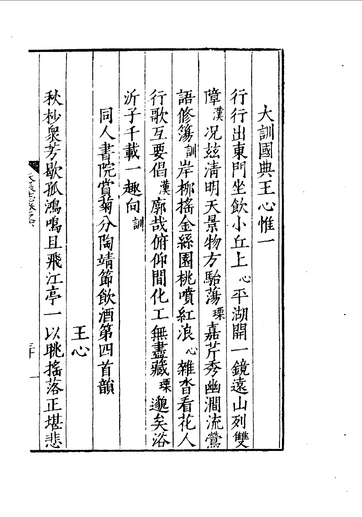 大訓國典王心惟一
行行出東門坐飲小丘上心平湖開一鏡遠山列雙
障漢況兹清明天景物方駘蕩環嘉芹秀幽澗流鶯
語修簜訓岸柳搖金絲園桃噴紅浪心雜沓看花人
行歌互要倡漢廓哉俯仰間化工無盡藏環邈矣浴
沂子千載一趣向訓
同人書院賞菊分陶靖節飲酒第四首韻
王心
秋杪衆芳歇孤鴻鳴且飛江亭一以眺搖落正堪悲